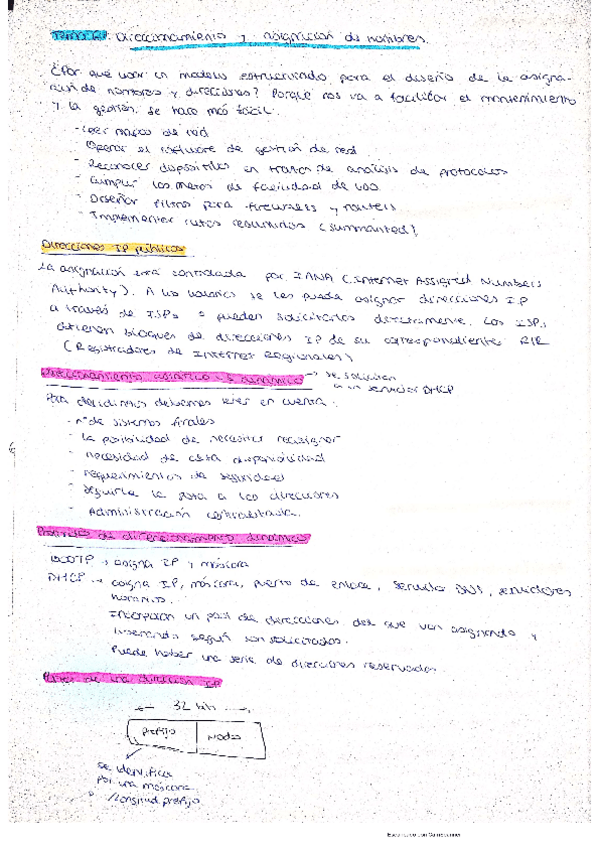 Direccionamiento y asignación de nombres.
¿Por qué usar un modelo estructurado para el diseño de la asigna-
ción de nombres y direcciones? Porque nos va a facilitar el mantenimiento
y la gestión. Se hace más fácil:
- Leer mapas de red
- Operar el software de gestión de red
- Reconocer dispositivos en trazas de análisis de protocolos
- Cumplir las metas de facilidad de uso
- Diseñar filtros para firewalls y routers
- Implementar rutas resumidas (summarited)
Direcciones IP públicas
La asignación está controlada por IANA (Internet Assigned Numbers
Authority). A los usuarios se les puede asignar direcciones IP
a través de ISPs o pueden solicitarlas directamente. Los ISPs
obtienen bloques de direcciones IP de su correspondiente RIR
(Registradores de Internet Regionales)
Direccionamiento estático o dinámico → se solicitan
a un servidor DHCP
Para decidirnos debemos tener en cuenta:
- nº de sistemas finales
- la posibilidad de necesitar reasignar
- necesidad de alta disponibilidad
- requerimientos de seguridad
- seguirle la pista a las direcciones
- Administración centralizada.
Protocolos de direccionamiento dinámico
BOOTP → asigna IP y máscara
DHCP → asigna IP, máscara, puerta de enlace, servidor DNS, servidores
horarios.
Incorporan un pool de direcciones del que van asignando y
liberando según son solicitados.
Puede haber una serie de direcciones reservadas.
Partes de una dirección IP
← 32 bits →
prefijo nodo
se identifica
por una máscara
/longitud prefijo
Escaneado con CamScanner